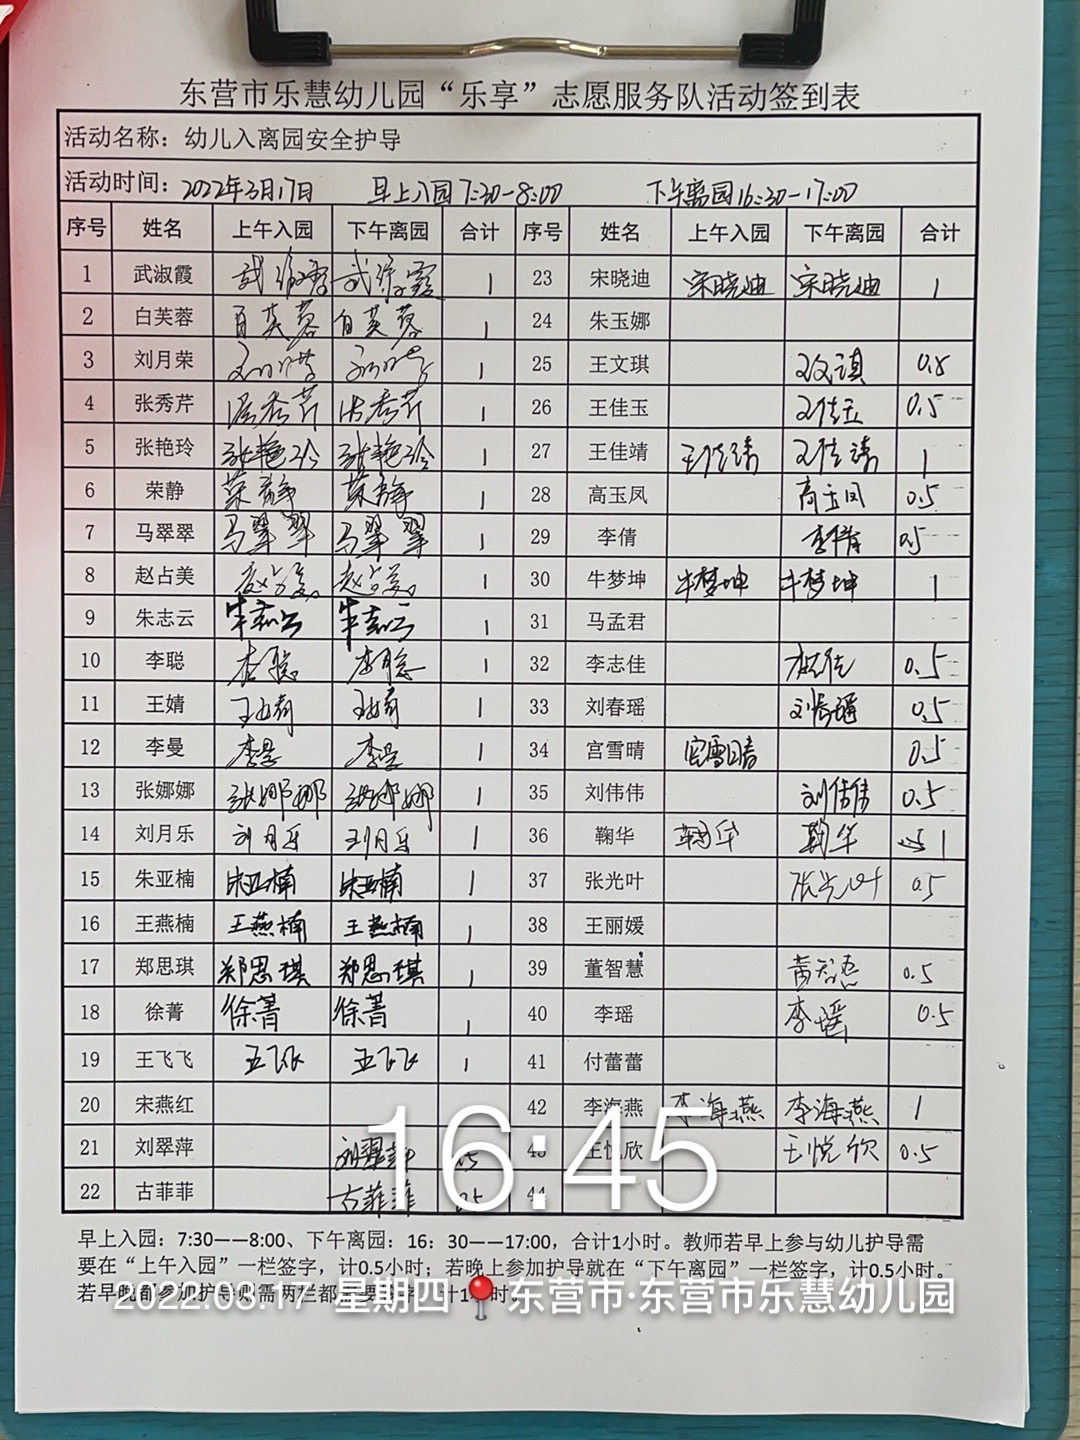 东营市乐慧幼儿园“乐享”志愿服务队活动签到表
活动名称：幼儿入离园安全护导
活动时间：2022年3月17日 早上入园7:30-8:00 下午离园16:30-17:00
序号 姓名 上午入园 下午离园 合计 序号 姓名 上午入园 下午离园 合计
1 武淑霞 武淑霞 武淑霞 1 23 宋晓迪 宋晓迪 宋晓迪 1
2 白芙蓉 白芙蓉 白芙蓉 1 24 朱玉娜
3 刘月荣 刘月荣 刘月荣 1 25 王文琪 王文琪 0.5
4 张秀芹 张秀芹 张秀芹 1 26 王佳玉 王佳玉 0.5
5 张艳玲 张艳玲 张艳玲 1 27 王佳靖 王佳靖 王佳靖 1
6 荣静 荣静 荣静 1 28 高玉凤 高玉凤 0.5
7 马翠翠 马翠翠 马翠翠 1 29 李倩 李倩 0.5
8 赵占美 赵占美 赵占美 1 30 牛梦坤 牛梦坤 牛梦坤 1
9 朱志云 朱志云 朱志云 1 31 马孟君
10 李聪 李聪 李聪 1 32 李志佳 李志佳 0.5
11 王婧 王婧 王婧 1 33 刘春瑶 刘春瑶 0.5
12 李曼 李曼 李曼 1 34 宫雪晴 宫雪晴 0.5
13 张娜娜 张娜娜 张娜娜 1 35 刘伟伟 刘伟伟 0.5
14 刘月乐 刘月乐 刘月乐 1 36 鞠华 鞠华 鞠华 1
15 朱亚楠 朱亚楠 朱亚楠 1 37 张光叶 张光叶 0.5
16 王燕楠 王燕楠 王燕楠 1 38 王丽媛
17 郑思琪 郑思琪 郑思琪 1 39 董智慧 董智慧 0.5
18 徐菁 徐菁 徐菁 1 40 李瑶 李瑶 0.5
19 王飞飞 王飞飞 王飞飞 1 41 付蕾蕾
20 宋燕红 42 李海燕 李海燕 李海燕 1
21 刘翠萍 刘翠萍 0.5 43 王悦欣 王悦欣 0.5
22 古菲菲 古菲菲 0.5 44
16:45
早上入园：7:30——8:00、下午离园：16：30——17:00，合计1小时。教师若早上参与幼儿护导需
要在“上午入园”一栏签字，计0.5小时；若晚上参加护导就在“下午离园”一栏签字，计0.5小时。
若早晚都参加护导则需两栏都需要签字，计1小时。
2022.03.17 星期四 东营市·东营市乐慧幼儿园